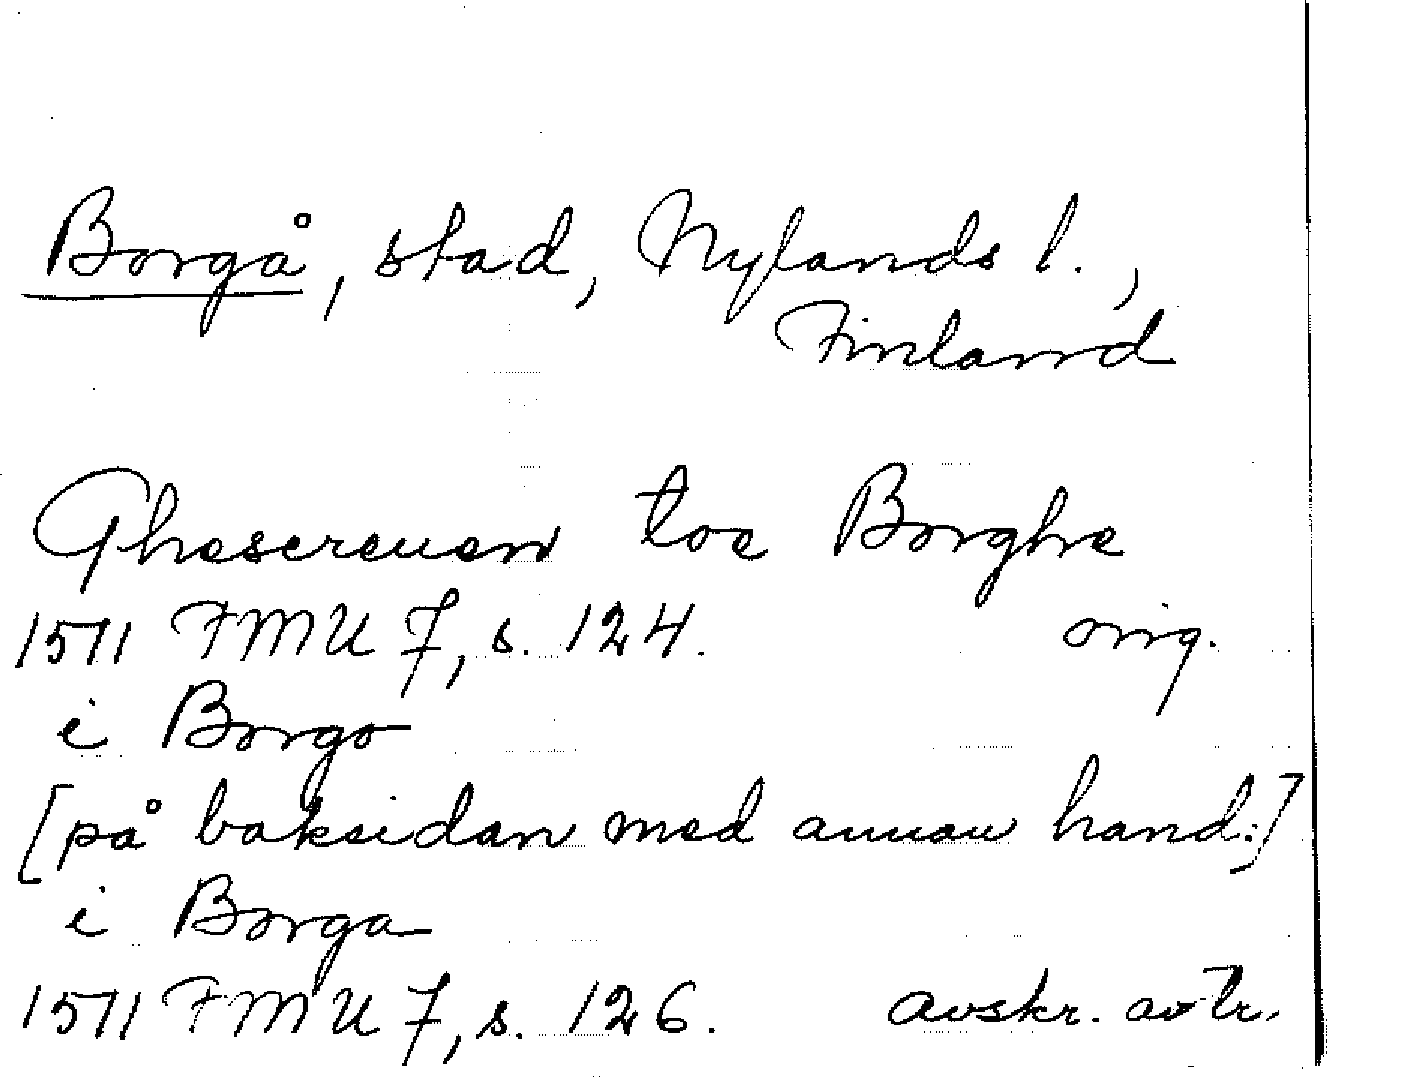 Borgå, stad, Nylands l.,
Finland
Ghescreuen toe Borghe
1511 FMU 7, s. 124. orig.
i Borgo
[på baksidan med annan hand:]
i Borga
1511 FMU 7, s. 126. avskr. av tr.